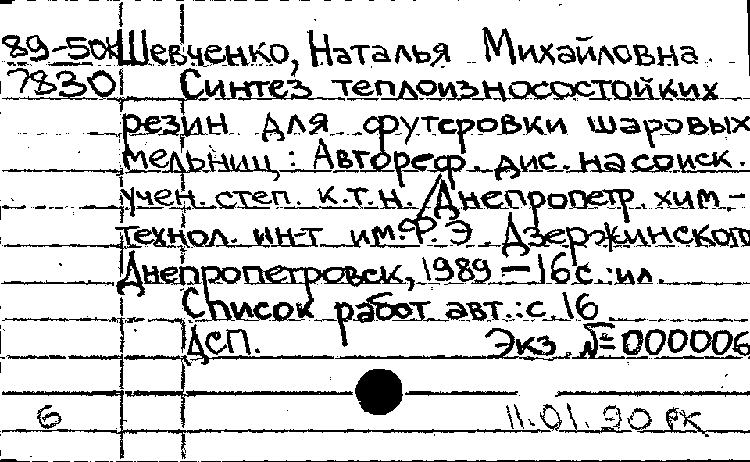 89-50к Шевченко, Наталья Михайловна.
7830 Синтез теплоизносостойких
резин для футеровки шаровых
мельниц: Автореф. дис. на соиск.
учен. степ. к.т.н. / Днепропетр. хим.-
технол. ин-т им. Ф. Э. Дзержинского
Днепропетровск, 1989 — 16 с.: ил.
Список работ авт.: с. 16.
ДСП. Экз. №=000006
6 11.01.90 РК